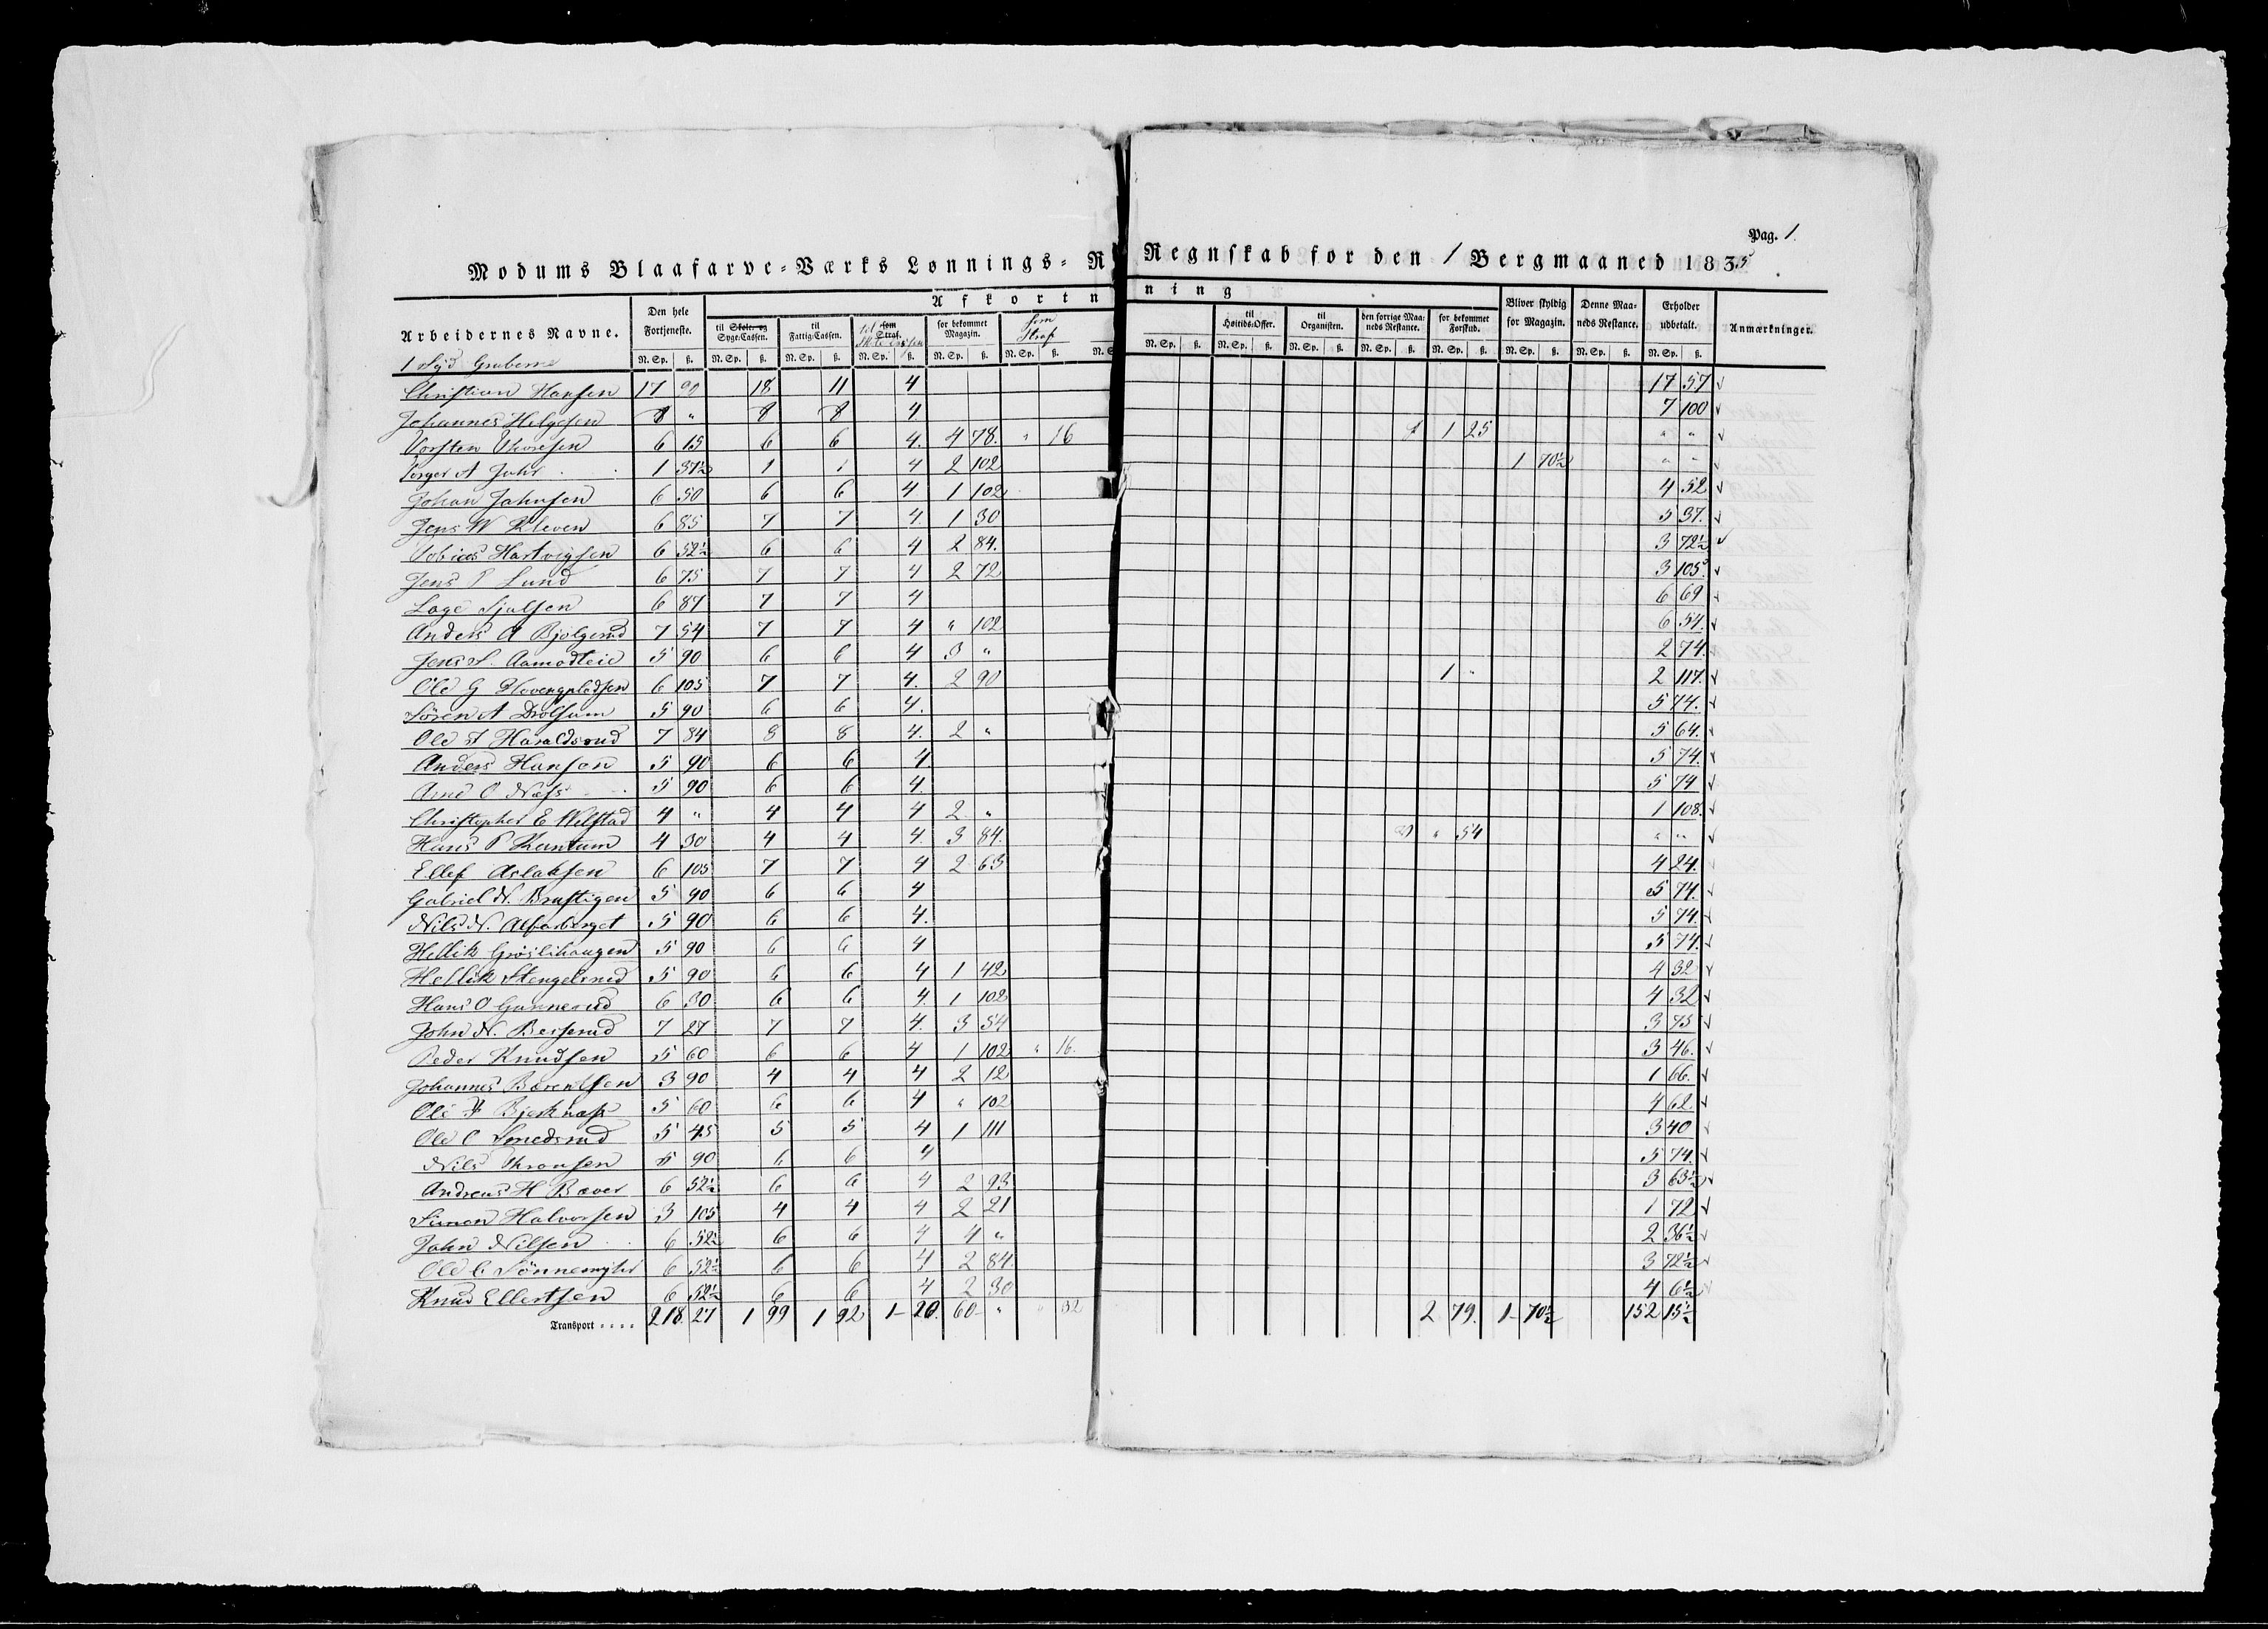 Pag. 1.
Modums Blaafarve-Værks Lønnings-R Regnskab for den 1 Bergmaaned 1835
Arbeidernes Navne. Den hele Fortjeneste. Afkortn ning Bliver skyldig for Magazin. Denne Maaneds Restance. Erholder udbetalt. Anmærkninger.
til Skole- og Syge-Cassen. til Fattig-Cassen. til som Straf. Skole Cassen for bekommet Magazin. som Straf til Høitids-Offer. til Organisten. den forrige Maaneds Restance. for bekommet Forskud.
N. Sp. ß. N. Sp. ß. N. Sp. ß. N. Sp. ß. N. Sp. ß. N. Sp. ß. N. S N. Sp. ß. N. Sp. ß. N. Sp. ß. N. Sp. ß. N. Sp. ß. N. Sp. ß. N. Sp. ß. N. Sp. ß.
1 Syd Gruberne
Christian Hansen 17 90 18 11 4 17 57 ✓
Johannes Helgesen 8 " 8 8 4 7 100 ✓
Torsten Thoresen 6 15 6 6 4. 4 78. " 16 1 25 " " ✓
Torger A Juhr 1 37½ 1 1 4 2 102 1 70½ " " ✓
Johan Johnsen 6 50 6 6 4 1 102 4 52 ✓
Jens W Kleven 6 85 7 7 4. 1 30 5 37. ✓
Tobias Hartvigsen 6 52½ 6 6 4 2 84. 3 72½ ✓
Jens P Lund 6 75 7 7 4 2 72 3 105. ✓
Lage Sjulsen 6 87 7 7 4 6 69 ✓
Anders A Bjølgerud 7 54 7 7 4 " 102 6 54. ✓
Jens S. Aamodteie 5 90 6 6 4 3 " 2 74. ✓
Ole G Hovengpledsen 6 105 7 7 4. 2 90 1 " 2 117. ✓
Søren A Drolsum 5 90 6 6 4. 5 74. ✓
Ole A Haraldsrud 7 84 8 8 4. 2 " 5 64. ✓
Anders Hansen 5 90 6 6 4. 5 74. ✓
Arne O Næss 5 90 6 6 4. 5 74 ✓
Christopher E Wilstad 4 " 4 4 4 2 " 1 108. ✓
Hans P Kantum 4 30 4 4 4. 3 84. " 54 " " ✓
Ellef Aslaksen 6 105 7 7 4 2 63 4 24. ✓
Gabriel N. Brustigen 5 90 6 6 4 5 74. ✓
Nils N. Alfarberget 5 90 6 6 4. 5 74. ✓
Hellik Grøslihaugen 5 90 6 6 4 5 74. ✓
Hellik Stengelsrud 5 90 6 6 4 1 42 4 32 ✓
Hans O Gunnerud 6 30 6 6 4. 1 102 4 32 ✓
John N. Besserud 7 27 7 7 4. 3 54 3 75 ✓
Peder Knudsen 5 60 6 6 4 1 102 " 16. 3 46. ✓
Johannes Bærentsen 3 90 4 4 4 2 12 1 66. ✓
Ole Bjerknæss 5 60 6 6 4 " 102 4 62 ✓
Ole O Smedsrud 5 45 5 5 4 1 111 3 40 ✓
Nils Thronsen 5 90 6 6 4 5 74. ✓
Andreas H Bæver 6 52½ 6 6 4 2 93 3 63½ ✓
Simen Halvorsen 3 105 4 4 4 2 21 1 72 ✓
John Nilsen 6 52½ 6 6 4 4 " 2 36½ ✓
Ole C Sønnemyhr 6 52½ 6 6 4 2 84. 3 72½ ✓
Knud Ellertsen 6 52½ 6 6 4 2 30 4 6½ ✓
Transport .... 218. 27 1 99 1 92 1- 20. 60- " " 32 2 79. 1- 70½ 152 15½